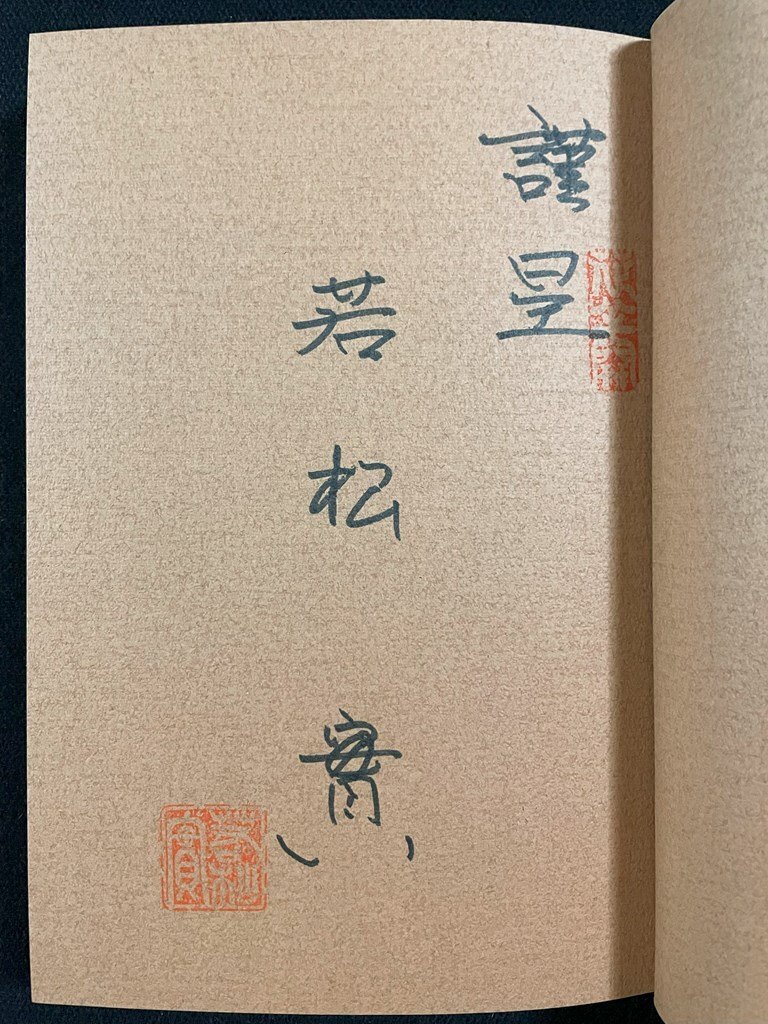 謹呈
若松 實